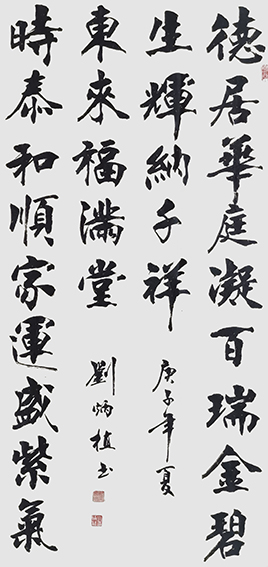 德居華庭凝百瑞金碧
生輝納千祥
時泰和順家運盛紫氣
東來福滿堂
庚子年夏
劉炳植書